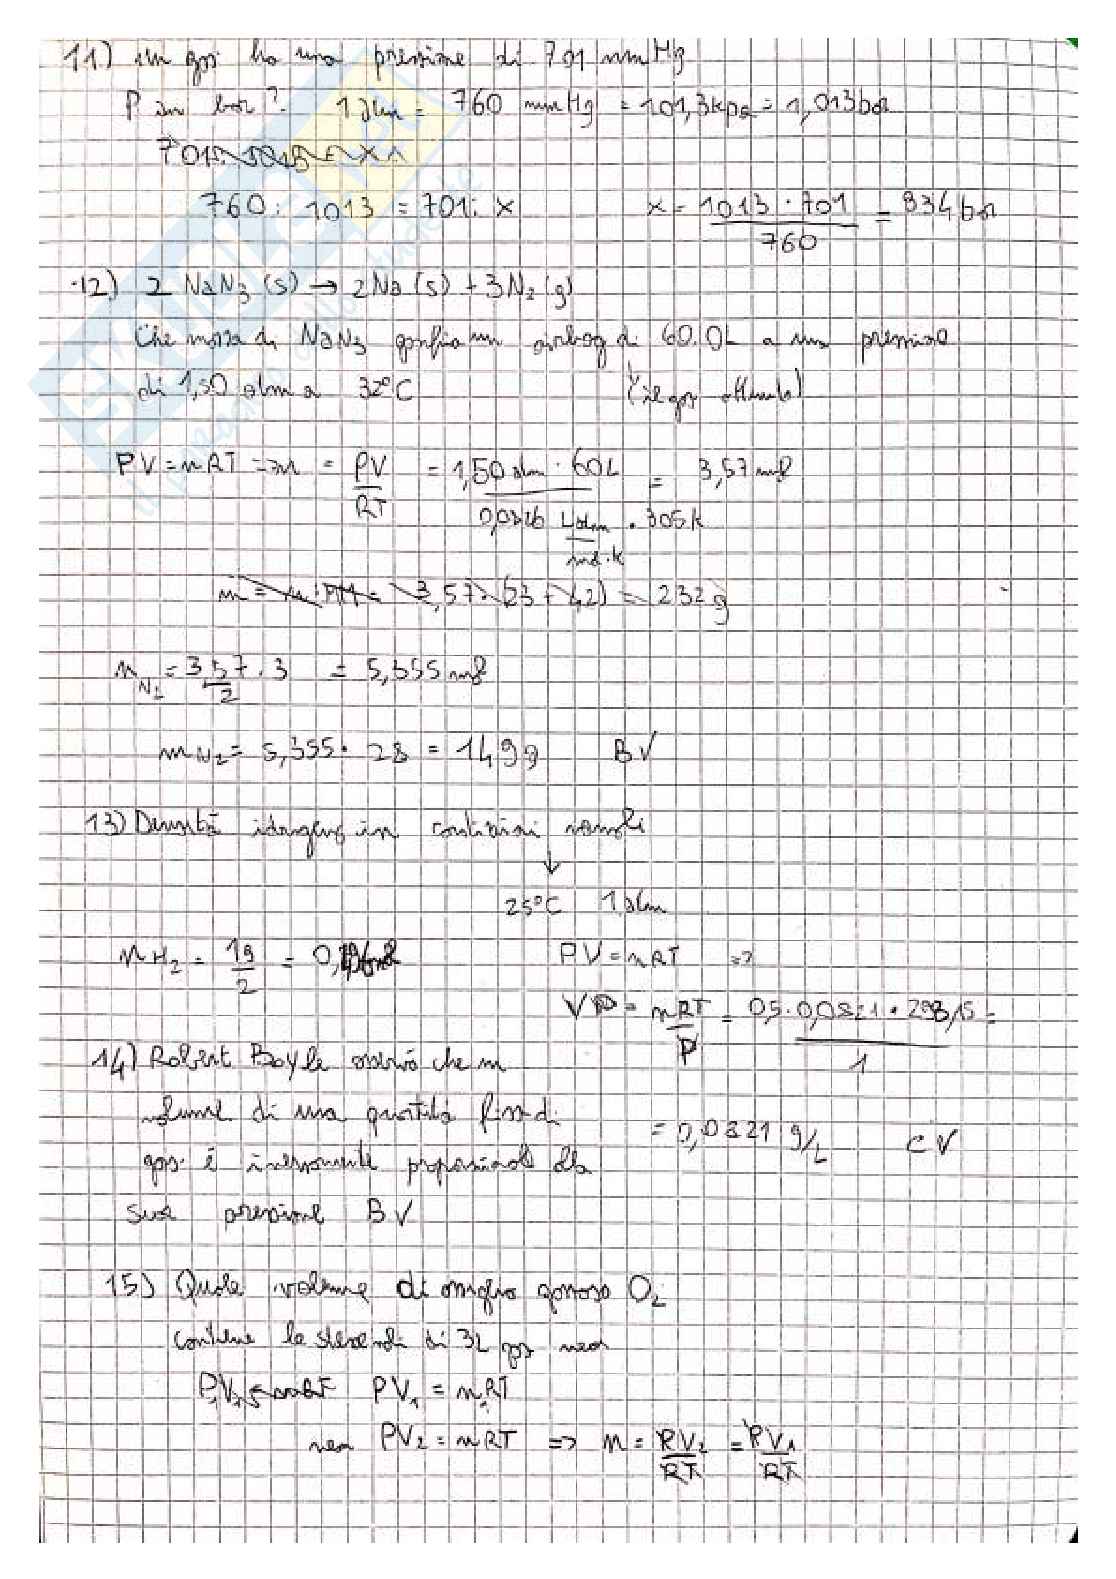 11) un gas ha una pressione di 701 mmHg
P in bar? 1 atm = 760 mmHg = 101,3 kpa = 1,013 bar
760 : 1013 = 701 : x x = 1013 · 701 / 760 = 934 bar
12) 2 NaN3 (s) → 2Na (s) + 3N2 (g)
Che massa di NaN3 gonfia un airbag di 60.0L a una pressione
di 1,50 atm a 32°C (il gas ottenuto)
PV = nRT => n = PV / RT = 1,50 atm · 60L / 0,0826 L atm / mol · K · 305 K = 3,57 mol
m = n · PM = 3,57 · (23 + 42) = 232 g
n N2 = 3,57 / 2 · 3 = 5,355 mol
m N2 = 5,355 · 28 = 149 g B V
13) Densità idrogeno in condizioni normali
↓
25°C 1 atm
n H2 = 1g / 2 = PV = nRT =>
V = nRT / P = 0,5 · 0,0821 · 298,15 / 1 =
= 0,0821 g/L C V
14) Robert Boyle osservò che in
volume di una quantità fissa di
gas è inversamente proporzionale alla
sua pressione B V
15) Quale volume di gassoso O2
contiene le stesse di 3L gas neon
PV1 = n RT
neon PV2 = nRT => n = PV2 / RT = PV1 / RT